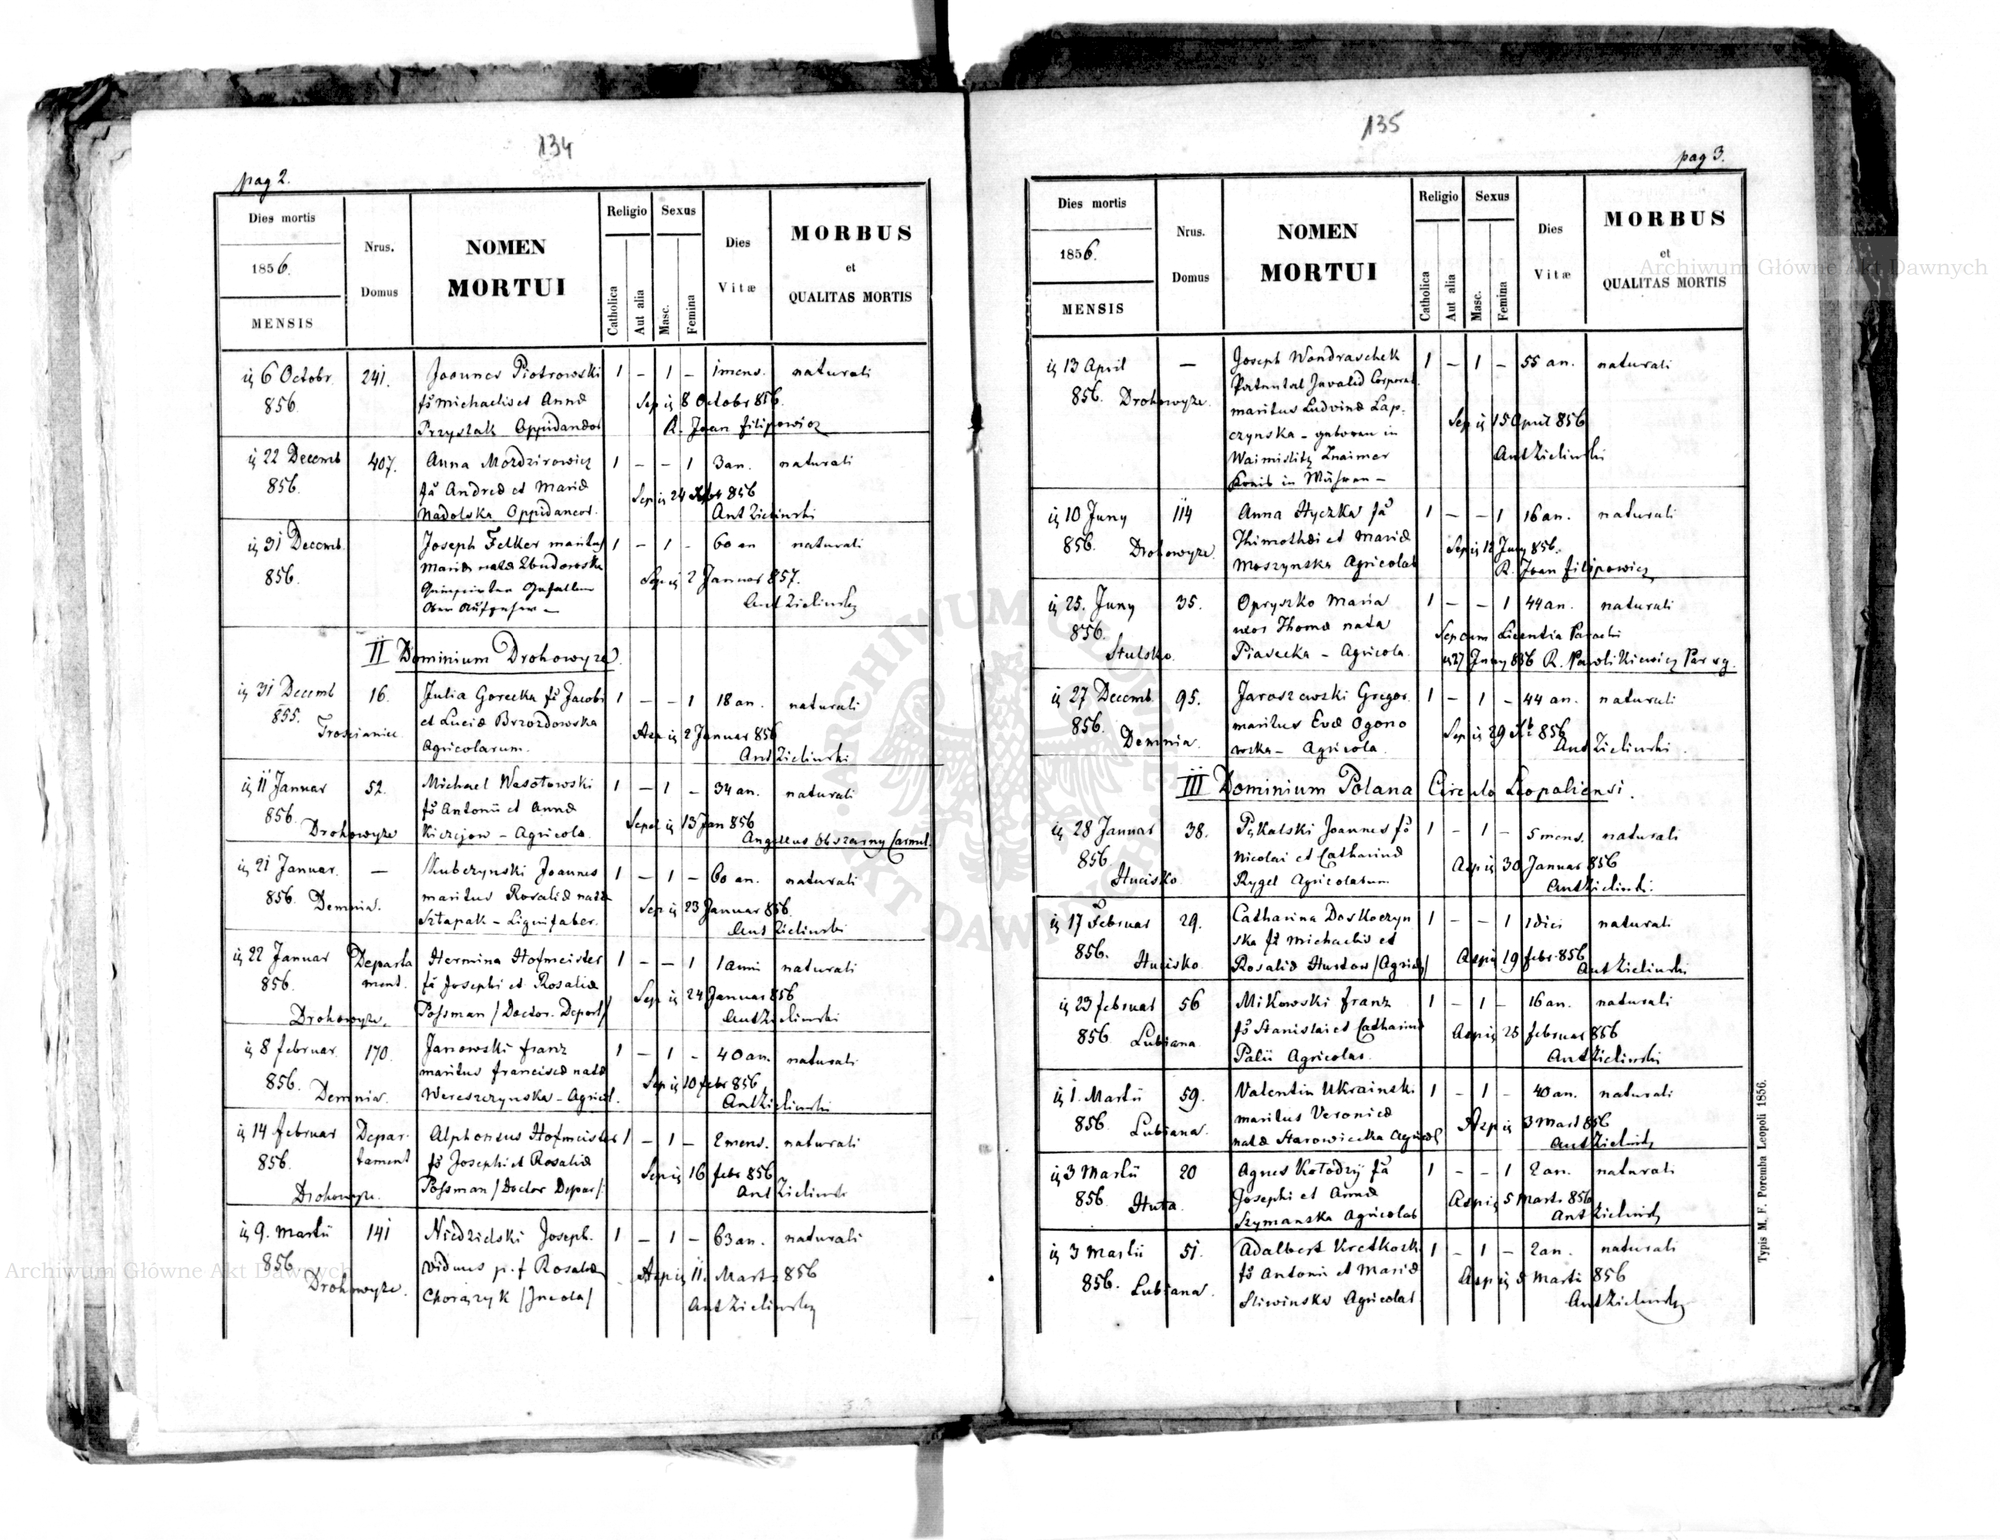 134
pag 2.
Dies mortis
1856.
MENSIS
Nrus.
Domus
NOMEN
MORTUI
Religio
Catholica
Aut alia
Sexus
Masc.
Femina
Dies
Vitæ
MORBUS
et
QUALITAS MORTIS
6 Octobr. 241. Joannes Piotrowski 1 – 1 – 1 mens. naturali
856. Michaelis et Annæ
8 Octobr 856.
Przystak Oppidanor
R. Joan Filipowicz
22 Decemb 407. Anna Mozdzirowicz 1 – – 1 3 an. naturali
856. Andreæ et Mariæ
24 856
Nadolska Oppidaneor. Ant Zielinski
31 Decemb. Joseph Felker maritus 1 – 1 – 60 an naturali
856. Mariæ natæ
2 Januar 857.
Ant Zielinski
II Dominium Drohowyże.
31 Decemb 16. Julia Gorecka Jacobi 1 – – 1 18 an. naturali
855. et Luciæ Brzozdowska
2 Januar 856
Agricolarum.
Ant Zielinski
11 Januar 52. Michael 1 – 1 – 34 an. naturali
856. Antonii et Annæ
Drohowyże – Agricola.
13 Jan 856
Angellus Obszarny Carmel.
21 Januar. – Joannes 1 – 1 – 60 an. naturali
856. Demnia. maritus Rosaliæ natæ
23 Januar 856.
Sztapak – Lignifaber.
Ant Zielinski
22 Januar Departa Hermina Hofmeister 1 – – 1 1 anni naturali
856. ment. Josephi et Rosaliæ
24 Januar 856
Drohowyże. Possman /Doctor. Depart/
Ant Zielinski
8 Februar. 170. Janowski Franz 1 – 1 – 40 an. naturali
856. Demnia. maritus Franciscæ natæ
10 Febr 856
Wereszczynska – Agricol.
Ant Zielinski
14 Februar Depar- Alphonsus Hofmeister 1 – 1 – 2 mens. naturali
856. tament Josephi et Rosaliæ
16 Febr 856
Drohowyże. Possman /Doctor Depar/
Ant Zielinski
9. Martii 141 Niedzielski Joseph. 1 – 1 – 63 an. naturali
856. viduus p. f Rosaliæ
11. Marti 856
Drohowyże.
Ant Zielinski
135
pag 3.
Dies mortis
1856.
MENSIS
Nrus.
Domus
NOMEN
MORTUI
Religio
Catholica
Aut alia
Sexus
Masc.
Femina
Dies
Vitæ
MORBUS
et
QUALITAS MORTIS
13 April – Joseph Wondraschek 1 – 1 – 55 an. naturali
856. Drohowyże. Patental Invalid Corporal.
maritus Ludvinæ Lap-
15 April 856
czynska – geboren in
Ant Zielinski
Znaimer
Kreis in Mähren –
10 Juny 114 Anna Hyczka 1 – – 1 16 an. naturali
856. Drohowyże. Thimothæi et Mariæ
12 Juny 856.
Moszynska Agricolar
R. Joan Filipowicz
25. Juny 35. Opryszko Maria 1 – – 1 44 an. naturali
856. Thomæ nata
cum Licentia Parochi
Stulsko. Piasecka – Agricola.
27 Juny 856 R. Pawlikiewicz
27 Decemb. 95. Jaroszewski Gregor. 1 – 1 – 44 an. naturali
856. Demnia. maritus Evæ Ogono
29 856
wska – Agricola.
Ant Zielinski
III Dominium Polana Circulo Leopoliensi.
28 Januar 38. Joannes 1 – 1 – 5 mens. naturali
856. Nicolai et Catharinæ
30 Januar 856
Hucisko Rygel Agricolarum
Ant Zielinski.
17 Februar 29. Catharina Doskoczyn 1 – – 1 1 diei naturali
856. ska Michaelis et
19 Febr. 856
Hucisko Rosaliæ
Ant Zielinski
23 Februar 56 Mikowski Franz 1 – 1 – 16 an. naturali
856 Lubiana Stanislai et Catharinæ
25 Februar 856
Palii Agricolar.
Ant Zielinski
1. Martii 59. Valentin Ukrainsk. 1 – 1 – 40 an. naturali
856. Lubiana. maritus Veronicæ
3 Mart 856
natæ Starowiecka
Ant Zielinski
3 Martii 20 Agnes Kołodzij 1 – – 1 2 an. naturali
856. Huta. Josephi et Annæ
5 Marti 856
Szymanska Agricolar
Ant Zielinski
3 Martii 51. Adalbert 1 – 1 – 2 an. naturali
856. Lubiana. Antonii et Mariæ
Marti 856
Sliwinska Agricolar.
Ant Zielinski
Typis M. F. Poremba Leopoli 1856.
Archiwum Główne Akt Dawnych
Archiwum Główne Akt Dawnych
ARCHIWUM GŁÓWNE AKT DAWNYCH